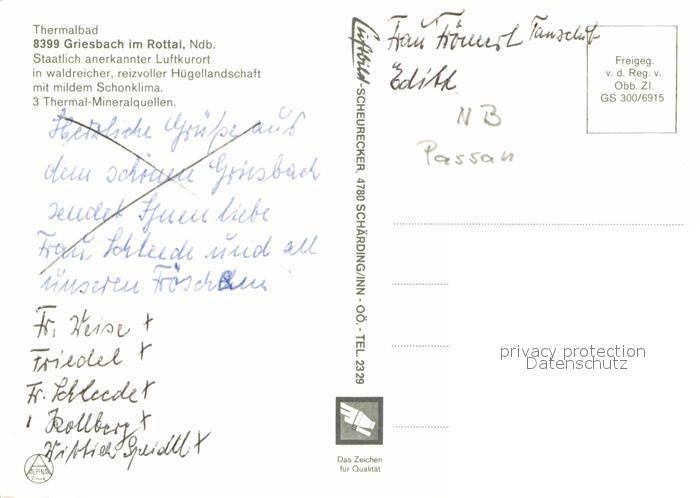 Thermalbad
8399 Griesbach im Rottal, Ndb.
Staatlich anerkannter Luftkurort
in waldreicher, reizvoller Hügellandschaft
mit mildem Schonklima.
3 Thermal-Mineralquellen.
Herzliche Grüße aus
dem schönen Griesbach
sendet Ihnen liebe
Frau Schleede und all
unseren
Fr. Weise +
Friedel +
Fr. Schleede +
Kollberg +
ALPINA
Luftbild-SCHEURECKER, 4780 SCHÄRDING/INN - OÖ. - TEL. 2329
Das Zeichen
für Qualität
Frau
Edith
NB
Passau
Freigeg.
v. d. Reg. v.
Obb. Zl.
GS 300/6915
privacy protection
Datenschutz